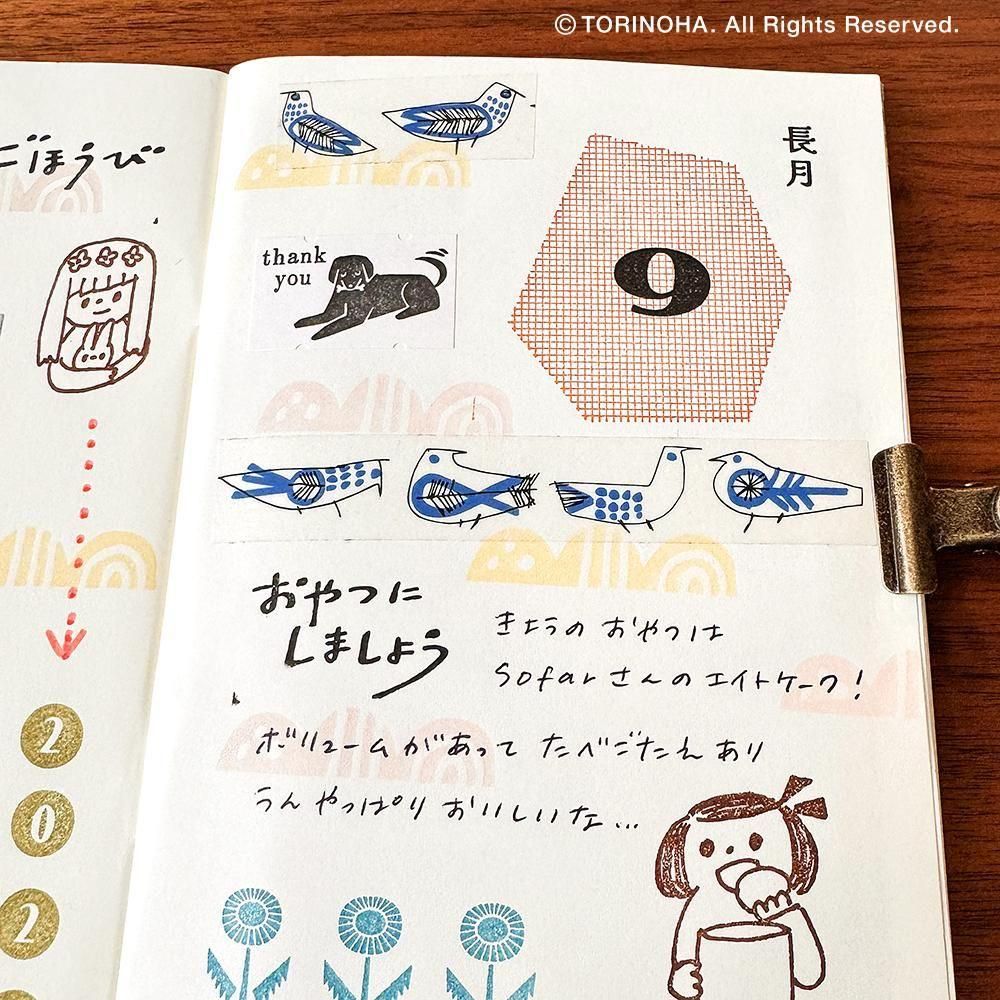 © TORINOHA. All Rights Reserved.
ごほうび
2
0
2
長月
9
thank
you
おやつに
しましょう
きょうのおやつは
sofarさんのエイトケーク!
ボリュームがあって たべごたえあり
うんやっぱりおいしいな...